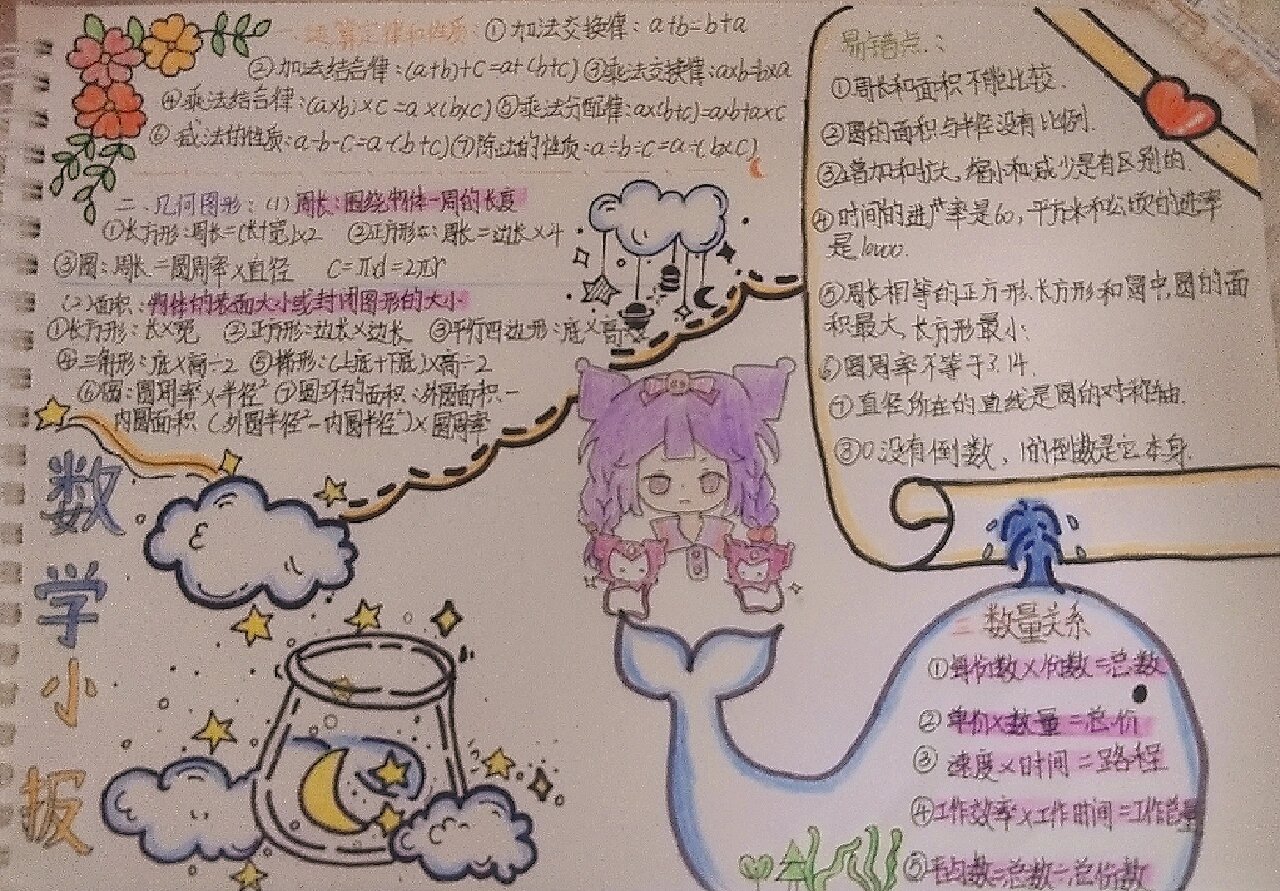 一、运算定律和性质：①加法交换律：a+b=b+a
②加法结合律：(a+b)+c=a+(b+c) ③乘法交换律：a×b=b×a
④乘法结合律：(a×b)×c=a×(b×c) ⑤乘法分配律：a×(b+c)=a×b+a×c
⑥减法的性质：a-b-c=a-(b+c) ⑦除法的性质：a÷b÷c=a÷(b×c)
二、几何图形：(1) 周长：围绕物体一周的长度
①长方形：周长=(长+宽)×2 ②正方形：周长=边长×4
③圆：周长=圆周率×直径 C=πd=2πr
(2)面积：物体的表面大小或封闭图形的大小
①长方形：长×宽 ②正方形：边长×边长 ③平行四边形：底×高
④三角形：底×高÷2 ⑤梯形：(上底+下底)×高÷2
⑥圆：圆周率×半径² ⑦圆环的面积：外圆面积-
内圆面积 (外圆半径²-内圆半径²)×圆周率
数学小报
易错点：
①周长和面积不能比较.
②圆的面积与半径没有比例.
③增加和扩大，缩小和减少是有区别的.
④时间的进率是60，平方米和公顷的进率
是10000.
⑤周长相等的正方形、长方形和圆中，圆的面
积最大，长方形最小.
⑥圆周率不等于3.14.
⑦直径所在的直线是圆的对称轴.
⑧0没有倒数，1的倒数是它本身.
三 数量关系
①每份数×份数=总数
②单价×数量=总价
③速度×时间=路程
④工作效率×工作时间=工作总量
⑤平均数=总数÷总份数